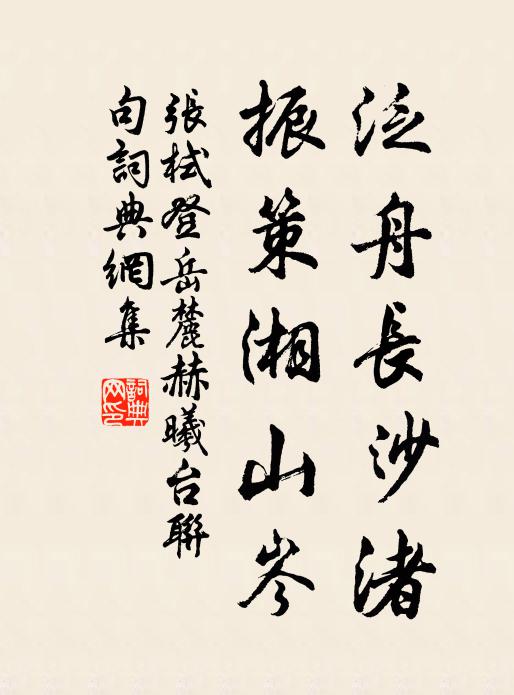 泛舟長沙渚
振策湘山岑
張栻登岳麓赫曦台聯
句詞典網集
詞典網印